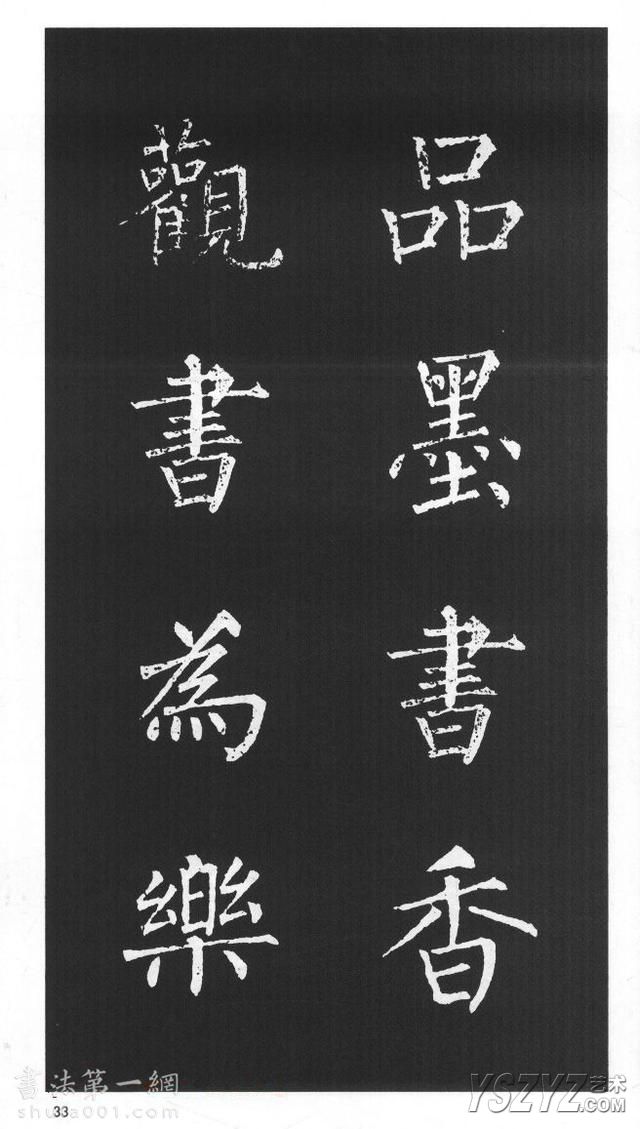 品墨書香
觀書為樂
書法第一網
shufa001.com
33
YSZYZ艺术
.COM